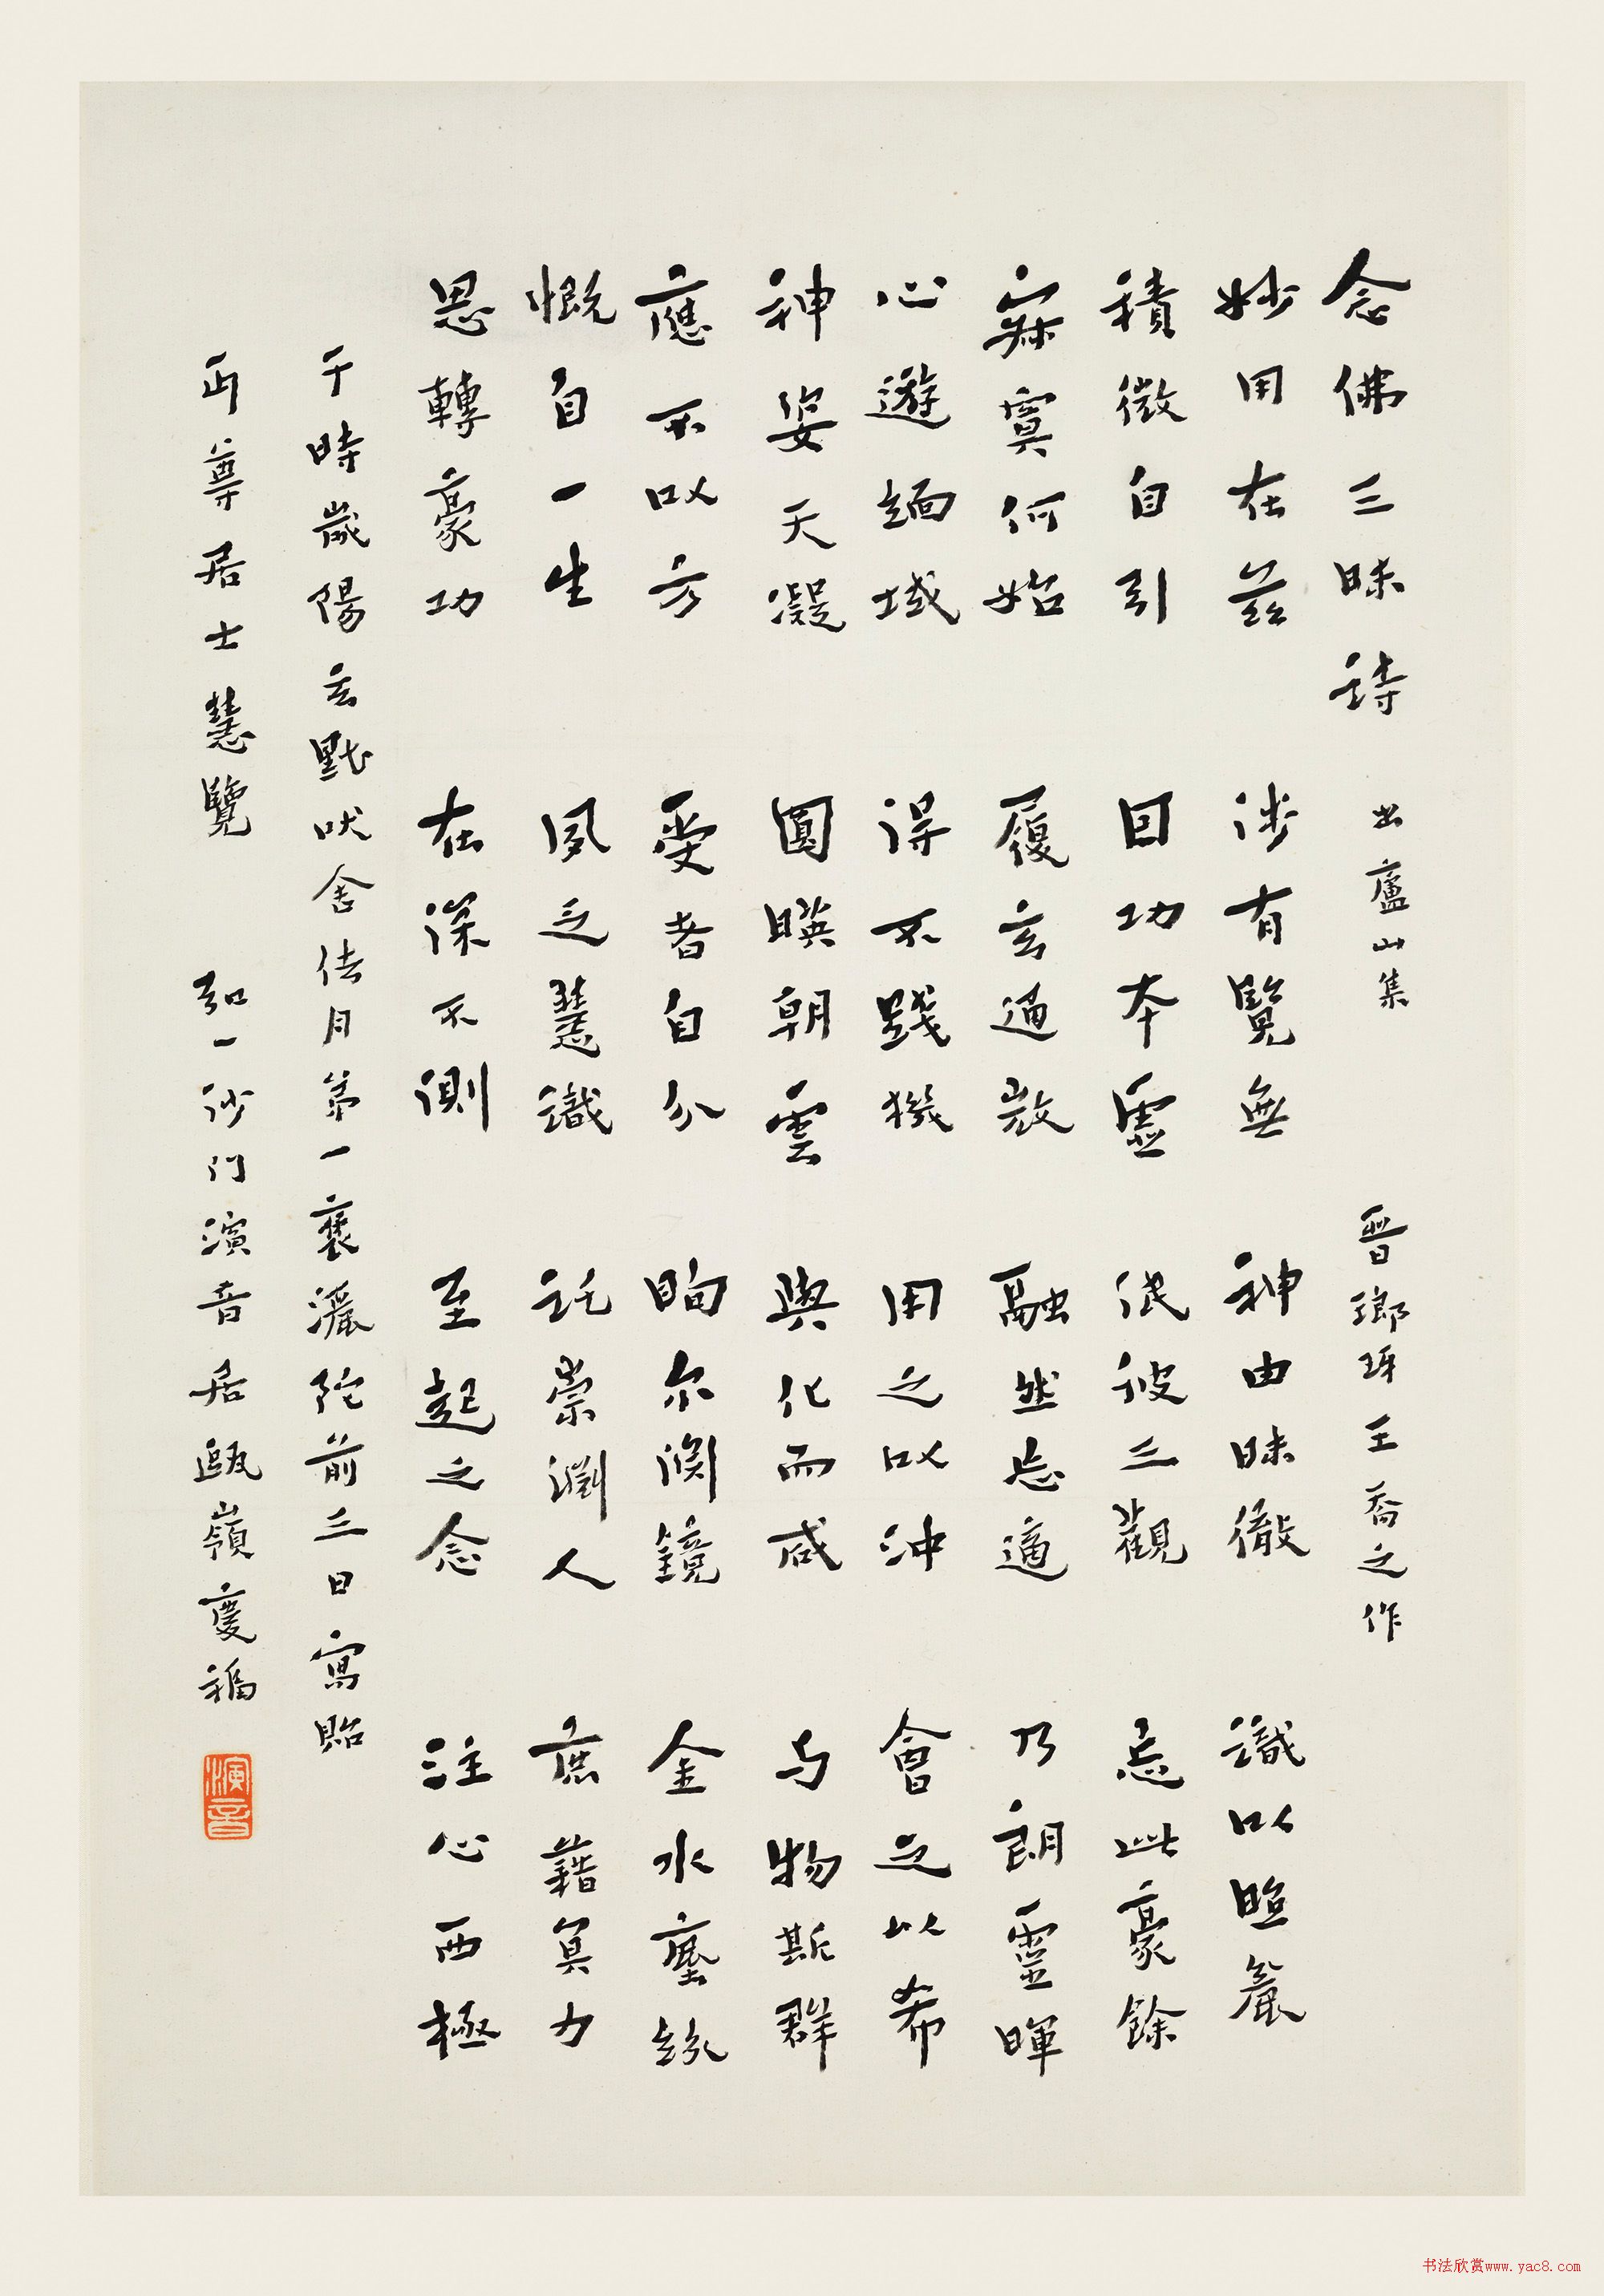 念佛三昧詩 出廬山集 晉瑯琊王喬之作
妙用在茲 涉有覽無 神由昧徹 識以照麁
積微自引 因功本虛 泯彼三觀 忘此豪餘
寂寞何始 履玄通微 融然忘適 乃朗靈暉
心遊緬域 得不踐機 用之以沖 會之以希
神姿天凝 圓暎朝雲 與化而感 与物斯群
應不以方 受者自分 眴尔淵鏡 金水塵紛
慨自一生 夙乏慧識 託崇淵人 庶藉冥力
思轉豪功 在深不測 至起之念 注心西極
于時歲陽玄黓吠舍佉月第一褒灑陀前三日寫貽
丏尊居士慧覽 弘一沙门演音居甌嶺慶福
演音
书法欣赏www.yac8.com